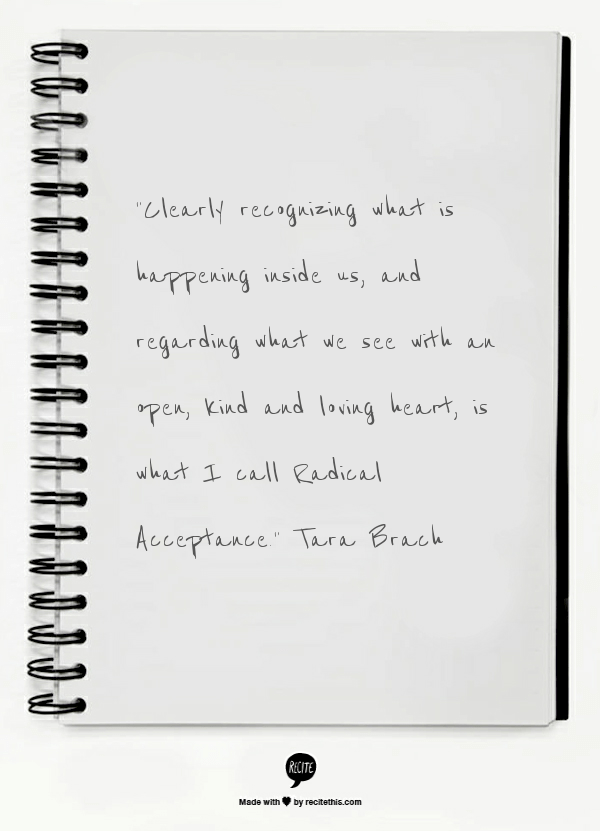 "Clearly recognizing what is
happening inside us, and
regarding what we see with an
open, kind and loving heart, is
what I call Radical
Acceptance." Tara Brach
RECITE
Made with ♥ by recitethis.com